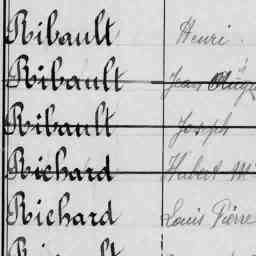 Ribault Henri
Ribault Jean
Ribault Joseph
Richard Hubert M
Richard Louis Pierre